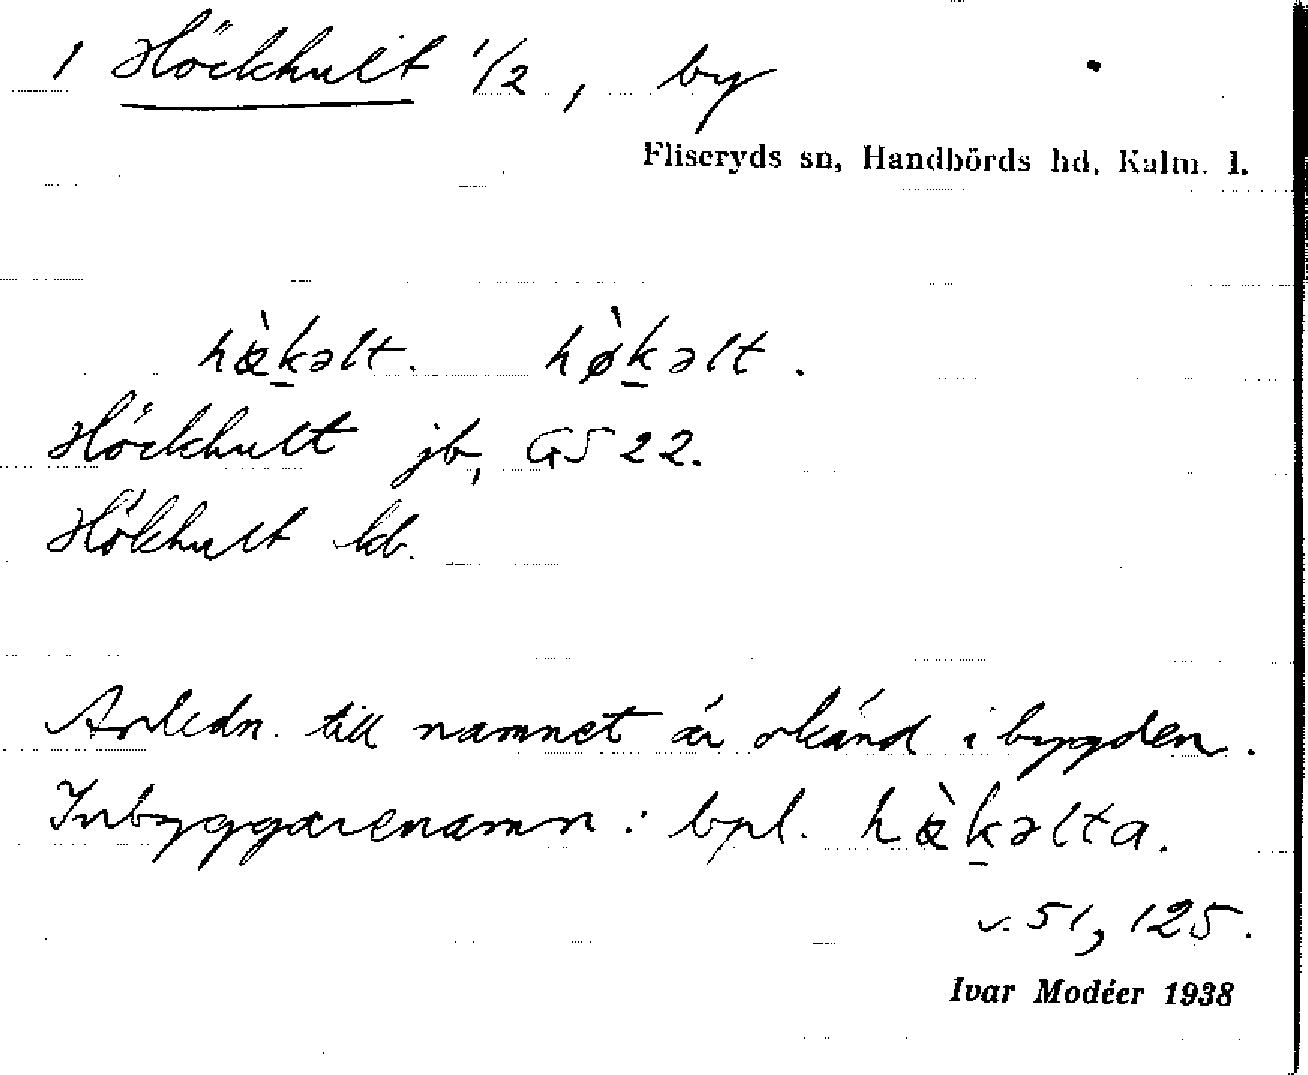 1 Höckhult 1/2, by
Fliseryds sn, Handbörds hd, Kalm. l.
hæ̀k̲əlt. hø̀k̲əlt.
Höckhult jb, GS 22.
Hökhult kb.
Anledn. till namnet är okänd i bygden.
Inbyggarenamn: bpl. hæ̀k̲əlta.
v. 51, 125.
Ivar Modéer 1938